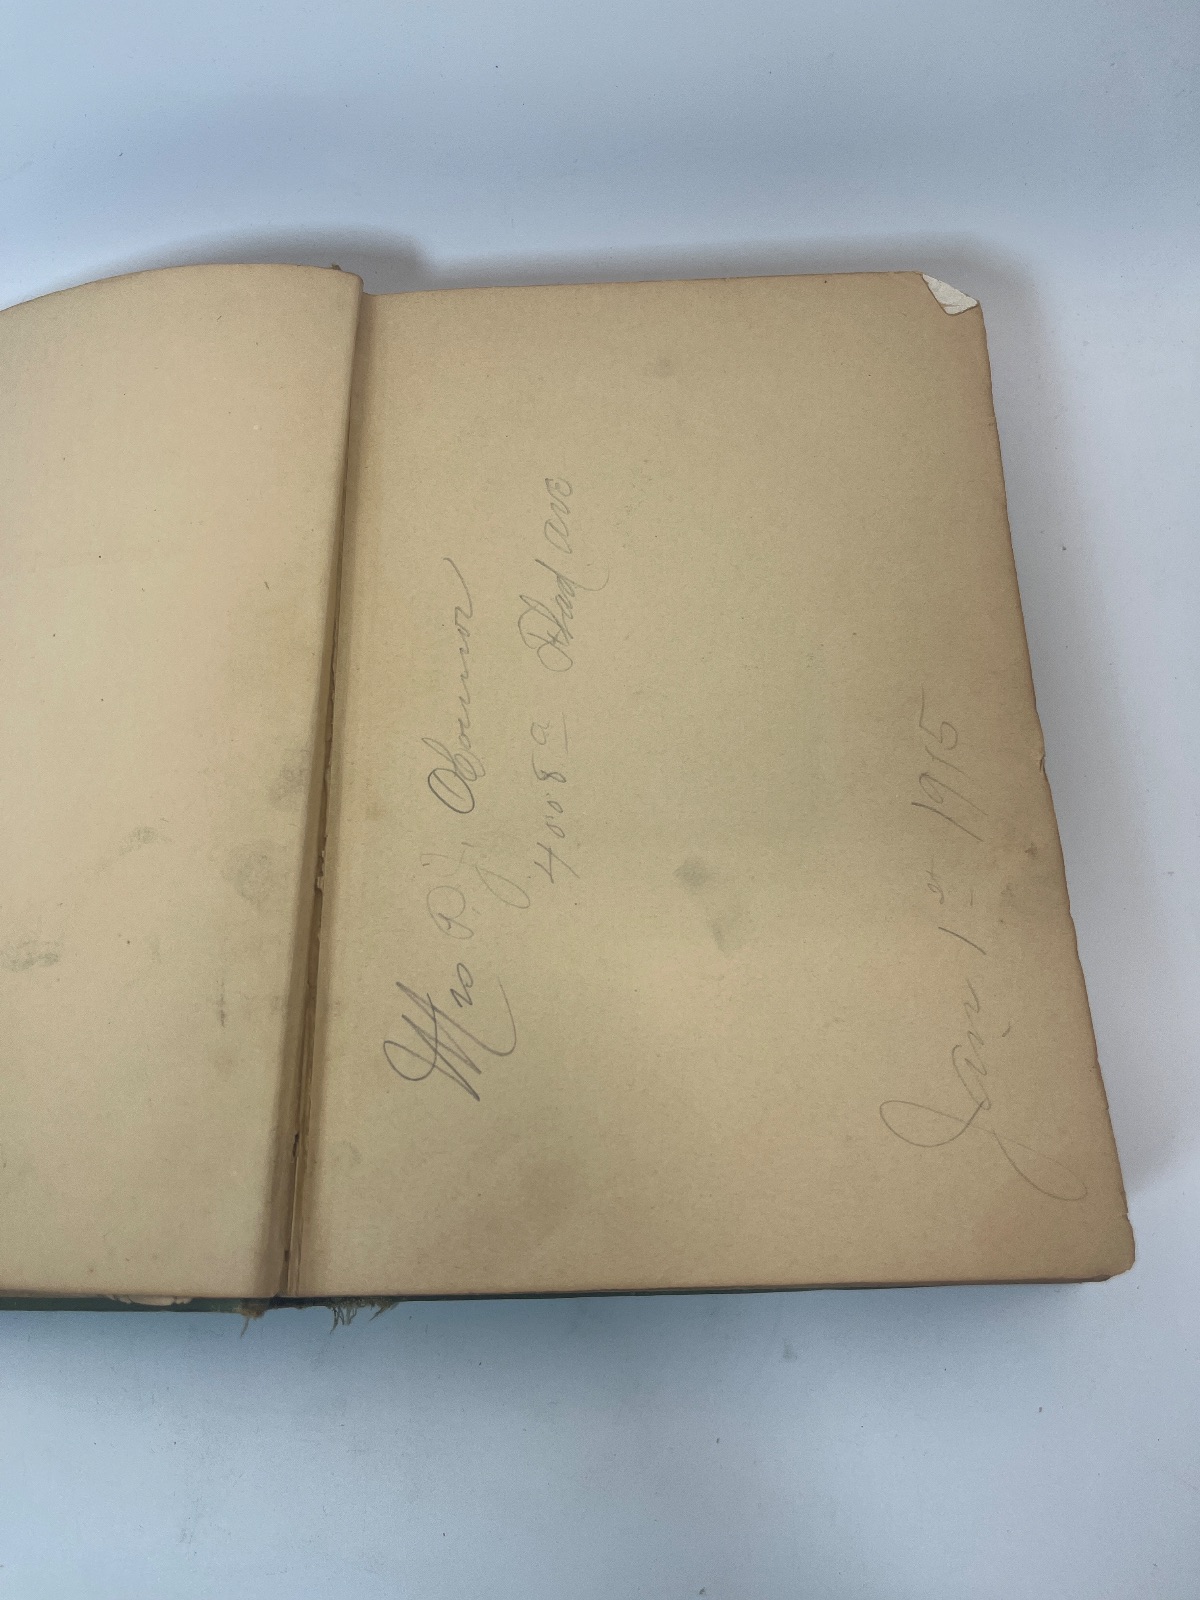 Mrs P. J. Oconnor
4008 a Flad ave
Jan. 1st 1915